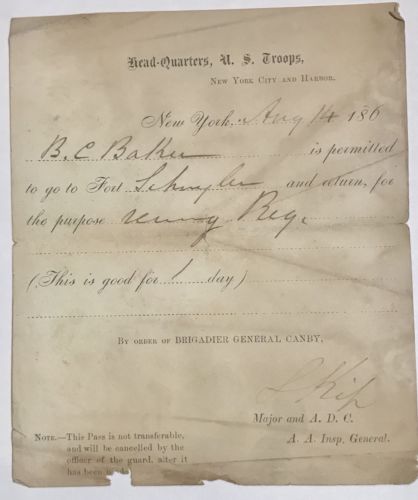 Head-Quarters, U. S. Troops,
New York City and Harbor.
New York, Aug 14 186
B. C Baker is permitted
to go to Fort Schuyler and return, for
the purpose Reg.
(This is good for 1 day)
By order of BRIGADIER GENERAL CANBY,
Kip
Major and A. D. C.
A. A. Insp. General.
Note.—This Pass is not transferable,
and will be cancelled by the
officer of the guard, after it
has been